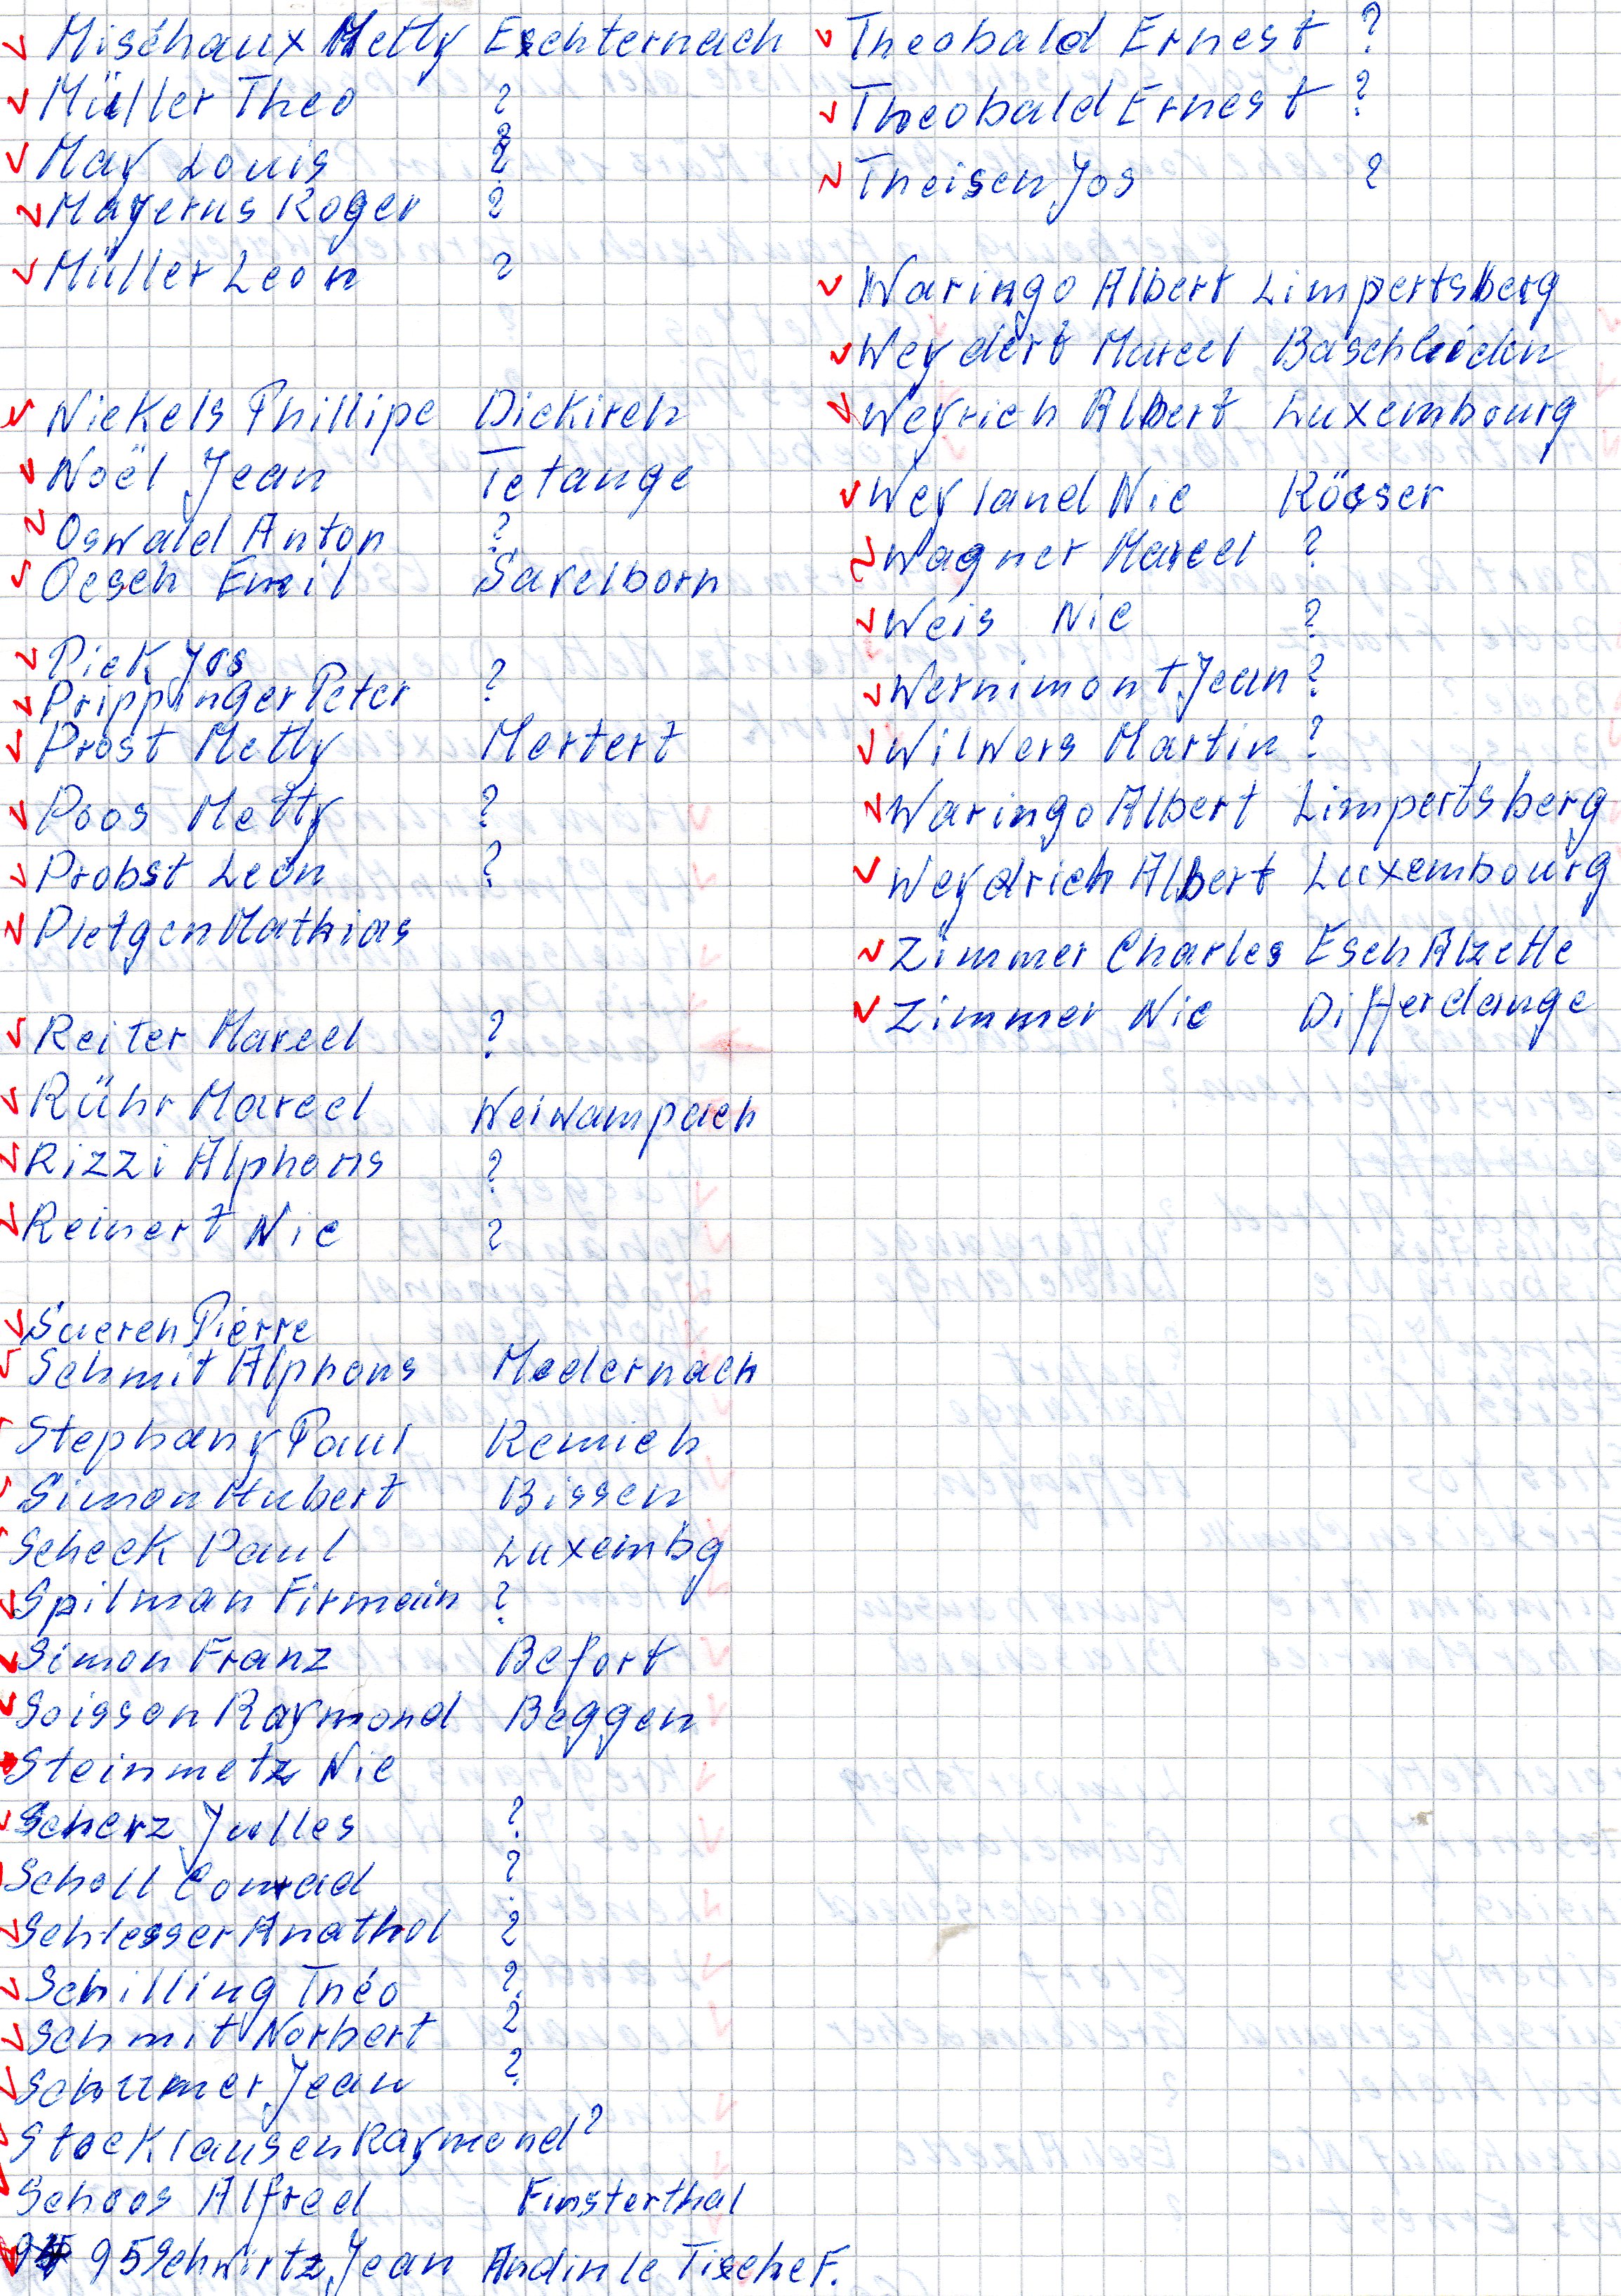 Mischaux Metty Echternach
Müller Theo ?
May Louis ?
Mayerus Roger ?
Müller Leon ?
Nickels Phillipe Diekirch
Noël Jean Tetange
Oswald Anton ?
Oesch Emil Savelborn
Pick Jos
Prippinger Peter ?
Prost Metty Mertert
Poos Metty ?
Probst Leon ?
Pletgen Mathias
Reiter Marcel ?
Rühr Marcel Weiwampach
Rizzi Alphons ?
Reinert Nic ?
Sueren Pierre
Schmit Alphons Medernach
Stephany Paul Remich
Simon Hubert Bissen
Scheck Paul Luxembg
Spilman Firmain ?
Simon Franz Befort
Soisson Raymond Beggen
Steinmetz Nic
Scherz Julles ?
Scholl Conrad ?
Schlesser Anathol ?
Schilling Théo ?
Schmit Norbert ?
Schumer Jean ?
Stocklausen Raymond ?
Schoos Alfred Finsterthal
95 Schwirtz Jean Andinle Tische F.
Theobald Ernest ?
Theobald Ernest ?
Theisen Jos ?
Waringo Albert Limpertsberg
Weydert Marcel Baschleiden
Weyrich Albert Luxembourg
Weyland Nic Röser
Wagner Marcel ?
Weis Nic ?
Wernimont Jean ?
Wilwers Martin ?
Waringo Albert Limpertsberg
Weydrich Albert Luxembourg
Zimmer Charles Esch Alzette
Zimmer Nic Differdange